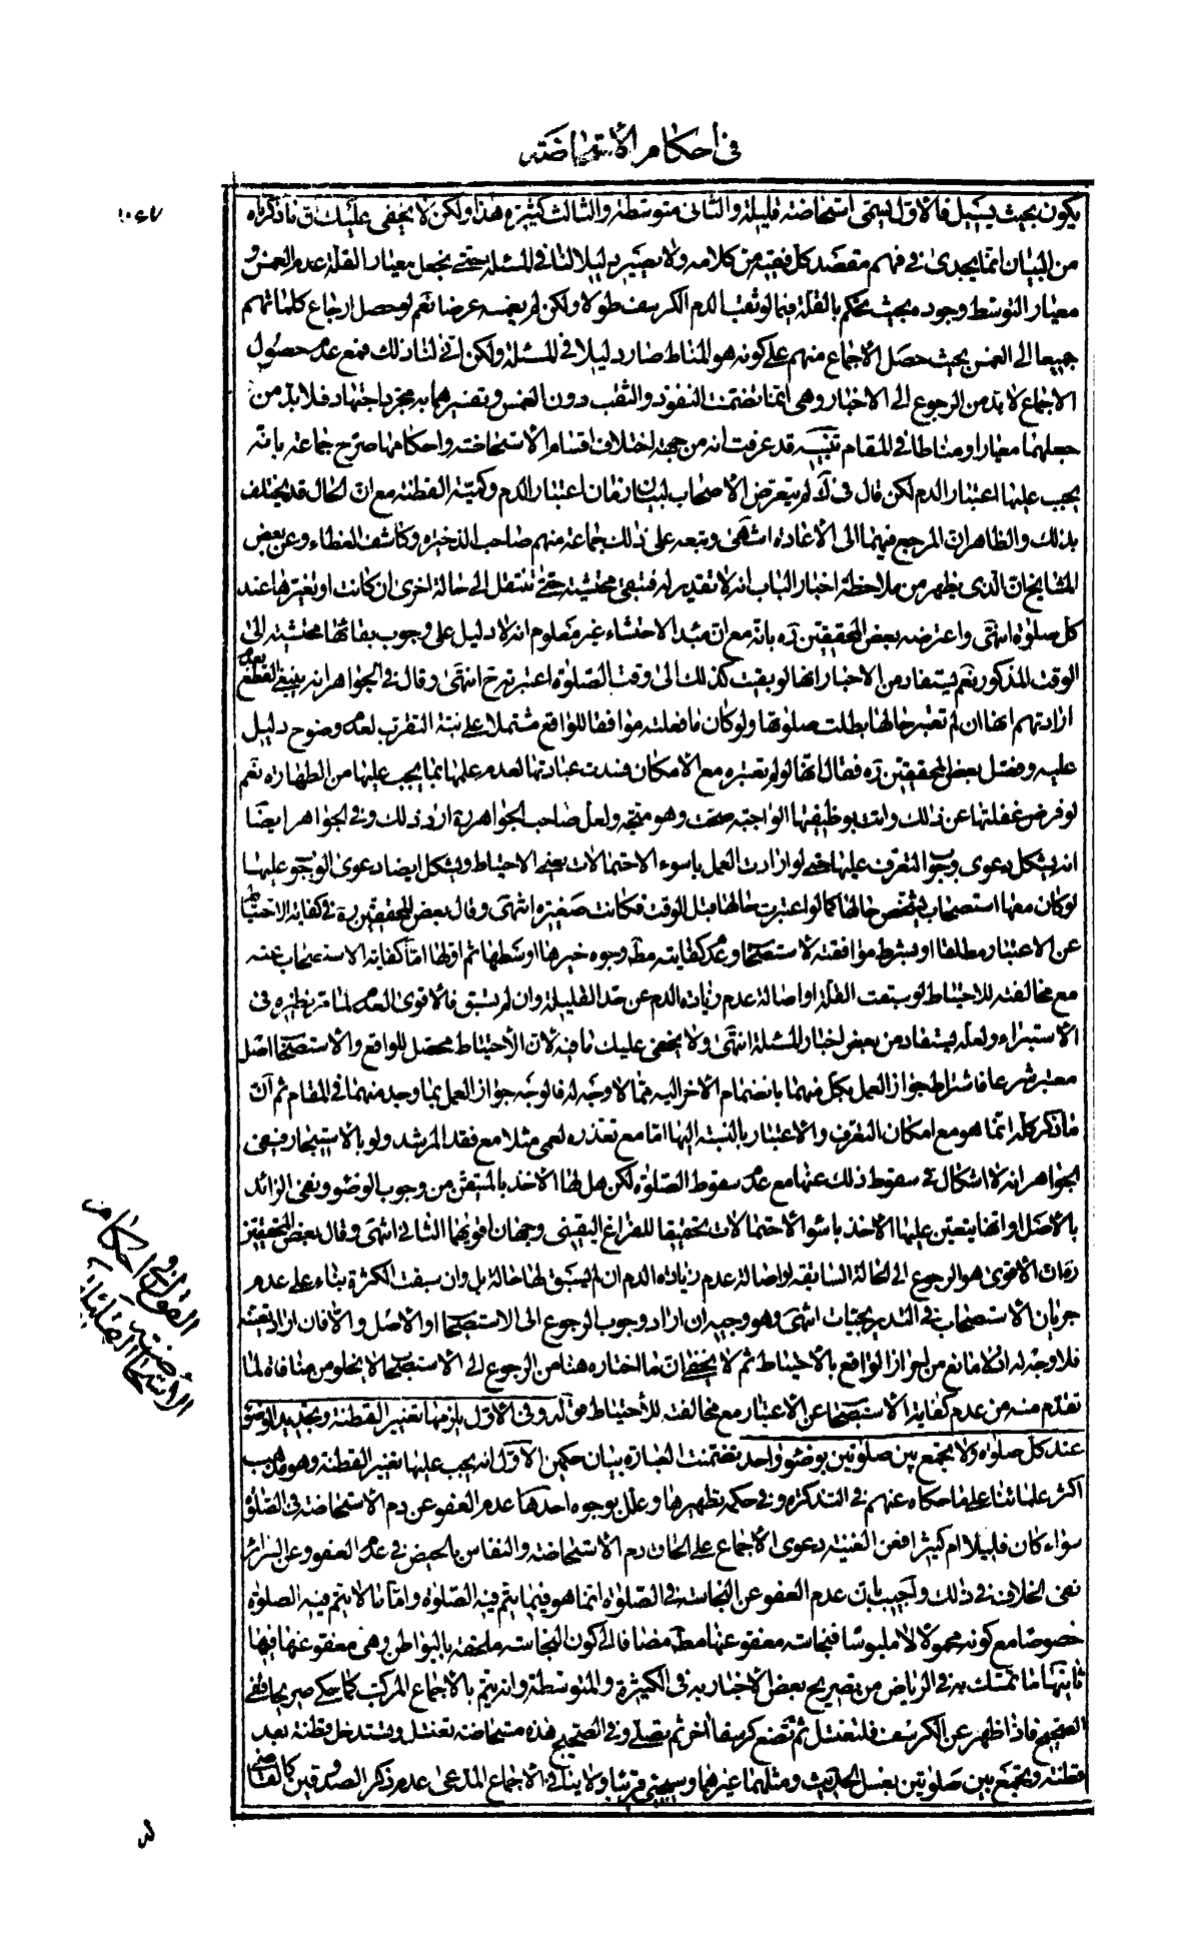 في احكام الاستحاضته
يكون بحيث يسيل فالاول يسمى استحاضته قليلة والثانى متوسطة والثالث كثيرة هذا ولكن لا يخفى عليك ان ما ذكرناه
من البيان انما يجدى في فهم مقصد كل فقيه من كلامه ولا يصير دليلا لنا في المسئلة حتى يجعل معيار القلة عدم الغمس و
معيار التوسط وجوده بحيث يحكم بالقلة فيما لو ثقب الدم الكرسف طولا ولكن لم يغمسه عرضا نعم لو حصل ارجاع كلماتهم
جميعا الى الغمس بحيث حصل الاجماع منهم على كونه هو المناط صار دليلا في المسئلة ولكن انى لنا ذلك فمع عدم حصول
الاجماع لا بد من الرجوع الى الاخبار وهى انما تضمنت النفوذ والثقب دون الغمس وتفسيرهما به مجرد اجتهاد فلا بد من
جعلهما معيارا ومناطا في المقام تنبيه قد عرفت انه من جهة اختلاف اقسام الاستحاضته واحكامها صرح جماعة بانه
يجب عليها اعتبار الدم لكن قال في لم يتعرض الاصحاب لبيان زمان اعتبار الدم وكمية القطنة مع ان الحال قد يختلف
بذلك والظاهر ان المرجع فيهما الى الاعادة انتهى وتبعه على ذلك جماعة منهم صاحب الذخيرة وكاشف الغطاء وعن بعض
المشايخ ان الذى يظهر من ملاحظة اخبار الباب انه لا تقدير له فتبقى محتشية حتى تنتقل الى حالة اخرى ان كانت او تغيرها عند
كل صلوة انتهى واعترضه بعض المحققين ره بانه مع ان مبدا الاحتشاء غير معلوم انه لا دليل على وجوب بقائها محتشية الى
الوقت المذكور نعم يستفاد من الاخبار انها لو بقيت كذلك الى وقت الصلوة اعتبرته ح انتهى وقال في الجواهر انه ينبغى القطع بعدم
ارادتهم انها ان لم تعتبر حالها بطلت صلوتها ولو كان ما فعلته موافقا للواقع مشتملا على نية التقرب لعدم وضوح دليل
عليه وفصل بعض المحققين ره فقال انها لو لم تعتبره مع الامكان فسدت عبادتها لعدم علمها بما يجب عليها من الطهارة نعم
لو فرض غفلتها عن ذلك واتت بوظيفتها الواجبة صحت وهو متجه ولعل صاحب الجواهر ره اراد ذلك وفي الجواهر ايضا
انه يشكل دعوى وجوب التعرف عليها حتى لو ارادت العمل باسوء الاحتمالات بعنى الاحتياط ويشكل ايضا دعوى الوجوب عليها
لو كان معها استصحاب يشخص حالها كما لو اعتبرت حالها قبل الوقت فكانت صغيرة انتهى وقال بعض المحققين ره في كفاية الاحتياط
عن الاعتبار مطلقا او بشرط موافقته لاستصحاب وعدم كفايته مطلقا وجوه خيرها اوسطها ثم اولها اما كفاية الاستصحاب عنه
مع مخالفته للاحتياط لو سبقت القلة او اصالة عدم زيادة الدم عن حد القليلة وان لم يسبق فالاقوى العدم لما مر نظيره في
الاستبراء ولعله يستفاد من بعض اخبار المسئلة انتهى ولا يخفى عليك ما فيه لان الاحتياط محصل للواقع والاستصحاب اصل
معتبر شرعا فاشتراط جواز العمل بكل منهما بانضمام الاخر اليه مما لا وجه له فالوجه جواز العمل بما وجد منهما في المقام ثم ان
ما ذكر كله انما هو مع امكان التعرف والاعتبار بالنسبة اليها اما مع تعذره لعمى مثلا مع فقد المرشد ولو بالاستيجار ففى
الجواهر انه لا اشكال في سقوط ذلك عنها مع عدم سقوط الصلوة لكن هل لها الاخذ بالمتيقن من وجوب الوضوء ونفى الزائد
بالاصل او انها يتعين عليها الاخذ باسوء الاحتمالات تحقيقا للفراغ اليقينى وجهان اقويهما الثانى انتهى وقال بعض المحققين
ره ان الاقوى هو الرجوع الى الحالة السابقة او اصالة عدم زيادة الدم ان لم يسبق لها حالة بل وان سبقت الكثرة بناء على عدم
جريان الاستصحاب في التدريجيات انتهى وهو وجيه ان اراد وجوب الرجوع الى الاستصحاب او الاصل والا فان اراد تعينه
فلا وجه له اذ لا مانع من احراز الواقع بالاحتياط ثم لا يخفى ان ما اختاره هنا من الرجوع الى الاستصحاب لا يخلو من منافاة لما
تقدم منه من عدم كفاية الاستصحاب عن الاعتبار مع مخالفته للاحتياط قوله وفي الاول يلزمها تغيير القطنة وتجديد الوضوء
عند كل صلوة ولا يجتمع بين صلوتين بوضوء واحد تضمنت العبارة بيان حكمين الاول انه يجب عليها تغيير القطنة وهو مذهب
اكثر علمائنا على ما حكاه عنهم في التذكرة وفي حكمه تطهيرها وعلل بوجوه احدها عدم العفو عن دم الاستحاضة في الصلوة
سواء كان قليلا ام كثيرا فعن الغنية دعوى الاجماع على الحاق دم الاستحاضة والنفاس بالحيض في عدم العفو وعن السرائر
نفى الخلاف في ذلك واجيب بان عدم العفو عن النجاسة في الصلوة انما هو فيما يتم فيه الصلوة واما ما لا يتم فيه الصلوة
خصوصا مع كونه محمولا لا ملبوسا فنجاسته معفو عنها مطلقا مضافا الى كون النجاسة ملحقة بالبواطن وهى معفو عنها فيها
ثانيها ما تمسك به في الرياض من تصريح بعض الاخبار به في الكثيرة والمتوسطة وانه يتم بالاجماع المركب كما حكى صريحا ففى
الصحيح فاذا ظهر عن الكرسف فلتغتسل ثم تضع كرسفا اخر ثم تصلى وفي الصحيح هذه مستحاضة تغتسل وتستدخل قطنة بعد
قطنة وتجمع بين صلوتين بغسل الحديث ومثلهما غيرهما وسيجىء قريبا ولا ينافى الاجماع المدعى عدم ذكر الصدوقين كالقاضى
القول في احكام
الاستحاضة القليلة